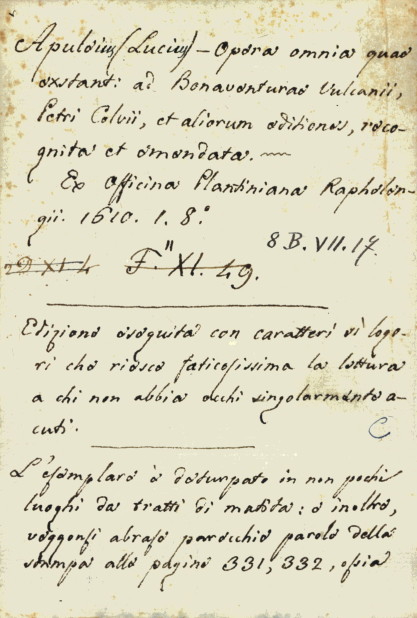 Apuleius (Lucius) – Opera omnia quae
exstant: ad Bonaventurae Vulcanii,
Petri Colvii, et aliorum editiones, reco-
gnita et emendata.
Ex Officina Plantiniana Raphelen-
gii. 1610. 1. 8.°
8.B.VII.17
D XI 4 F." XI. 49.
Edizione eseguita con caratteri sì logo-
ri che riesce faticosissima la lettura
a chi non abbia occhi singolarmente a-
cuti.
C
L'esemplare è deturpato in non pochi
luoghi da tratti di matita: e inoltre,
veggonsi abrase parecchie parole della
stampa alle pagine 331, 332, ossia